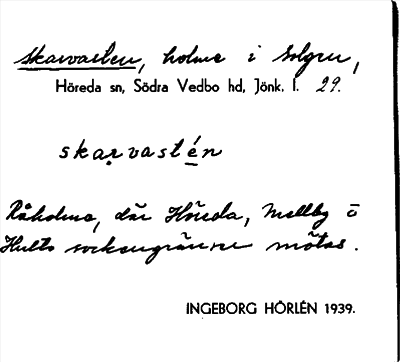 Skarvasten, holme i Solgen,
Höreda sn, Södra Vedbo hd, Jönk. l. 29.
skarvastén
Råholme, där Höreda, Mellby o
Hults sockengränser mötas.
INGEBORG HÖRLÉN 1939.